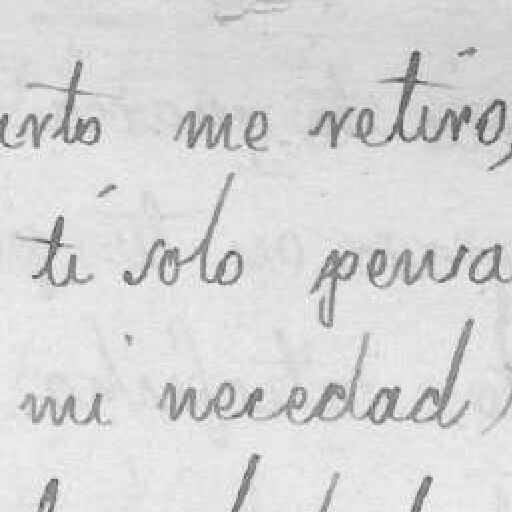 arto me retiro,
ti solo pensa
mi necedad